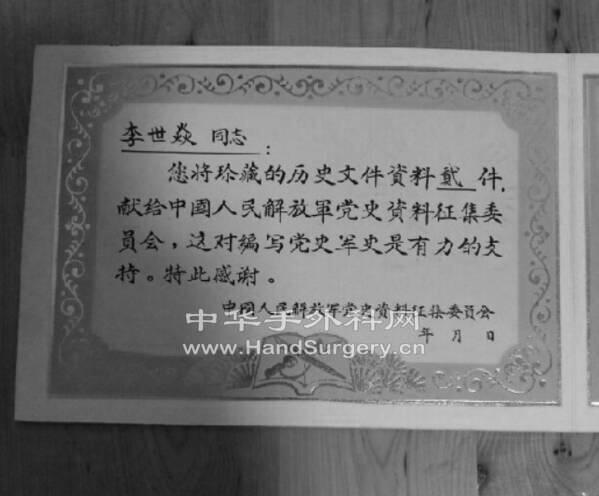 李世焱 同志：
您将珍藏的历史文件資料貳件，
献给中國人民解放軍党史資料征集委
員会，这对编写党史军史是有力的支
持。特此感谢。
中國人民解放軍党史資料征集委員会
年 月 日
中华手外科网
www.HandSurgery.cn